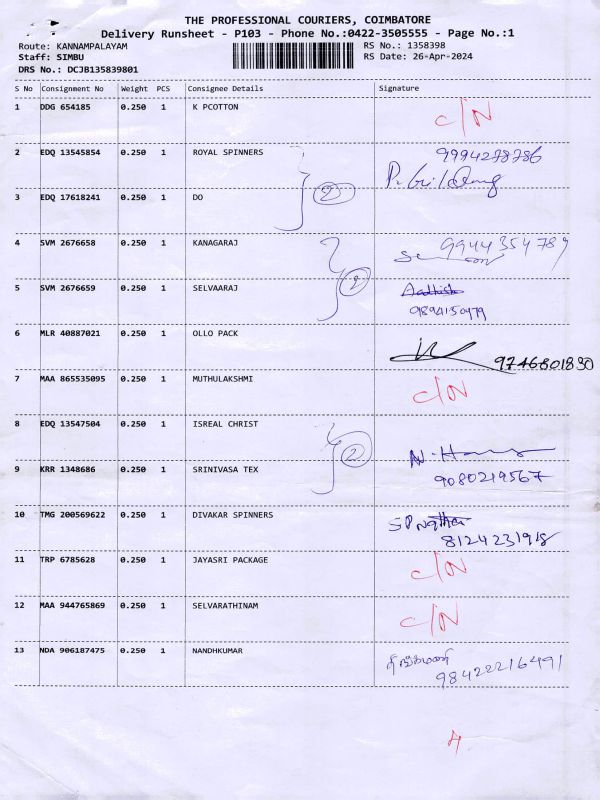 THE PROFESSIONAL COURIERS, COIMBATORE
Delivery Runsheet - P103 - Phone No.:0422-3505555 - Page No.:1
Route: KANNAMPALAYAM RS No.: 1358398
Staff: SIMBU RS Date: 26-Apr-2024
DRS No.: DCJB135839801
S No Consignment No Weight PCS Consignee Details Signature
1 DDG 654185 0.250 1 K PCOTTON C/N
2 EDQ 13545854 0.250 1 ROYAL SPINNERS 9994278786
3 EDQ 17618241 0.250 1 DO
2
4 SVM 2676658 0.250 1 KANAGARAJ 9944354789
5 SVM 2676659 0.250 1 SELVAARAJ Aadhish
2
9894150479
6 MLR 40887021 0.250 1 OLLO PACK
9746801830
7 MAA 865535095 0.250 1 MUTHULAKSHMI C/N
8 EDQ 13547504 0.250 1 ISREAL CHRIST
2
9 KRR 1348686 0.250 1 SRINIVASA TEX 9080219567
10 TMG 200569622 0.250 1 DIVAKAR SPINNERS
8124231918
11 TRP 6785628 0.250 1 JAYASRI PACKAGE C/N
12 MAA 944765869 0.250 1 SELVARATHINAM C/N
13 NDA 906187475 0.250 1 NANDHKUMAR தங்கமணி
98422216491